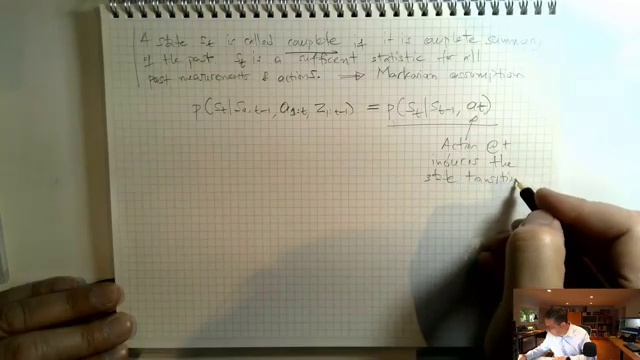 A state St is called complete if it is complete summary
of the past St is a sufficent statistic for all
past measurements & actions. ⟹ Markovian assumption
p(St|S0:t-1, a1:t, z1:t-1) = p(St|St-1, at)
Action @ t
induces the
state transition